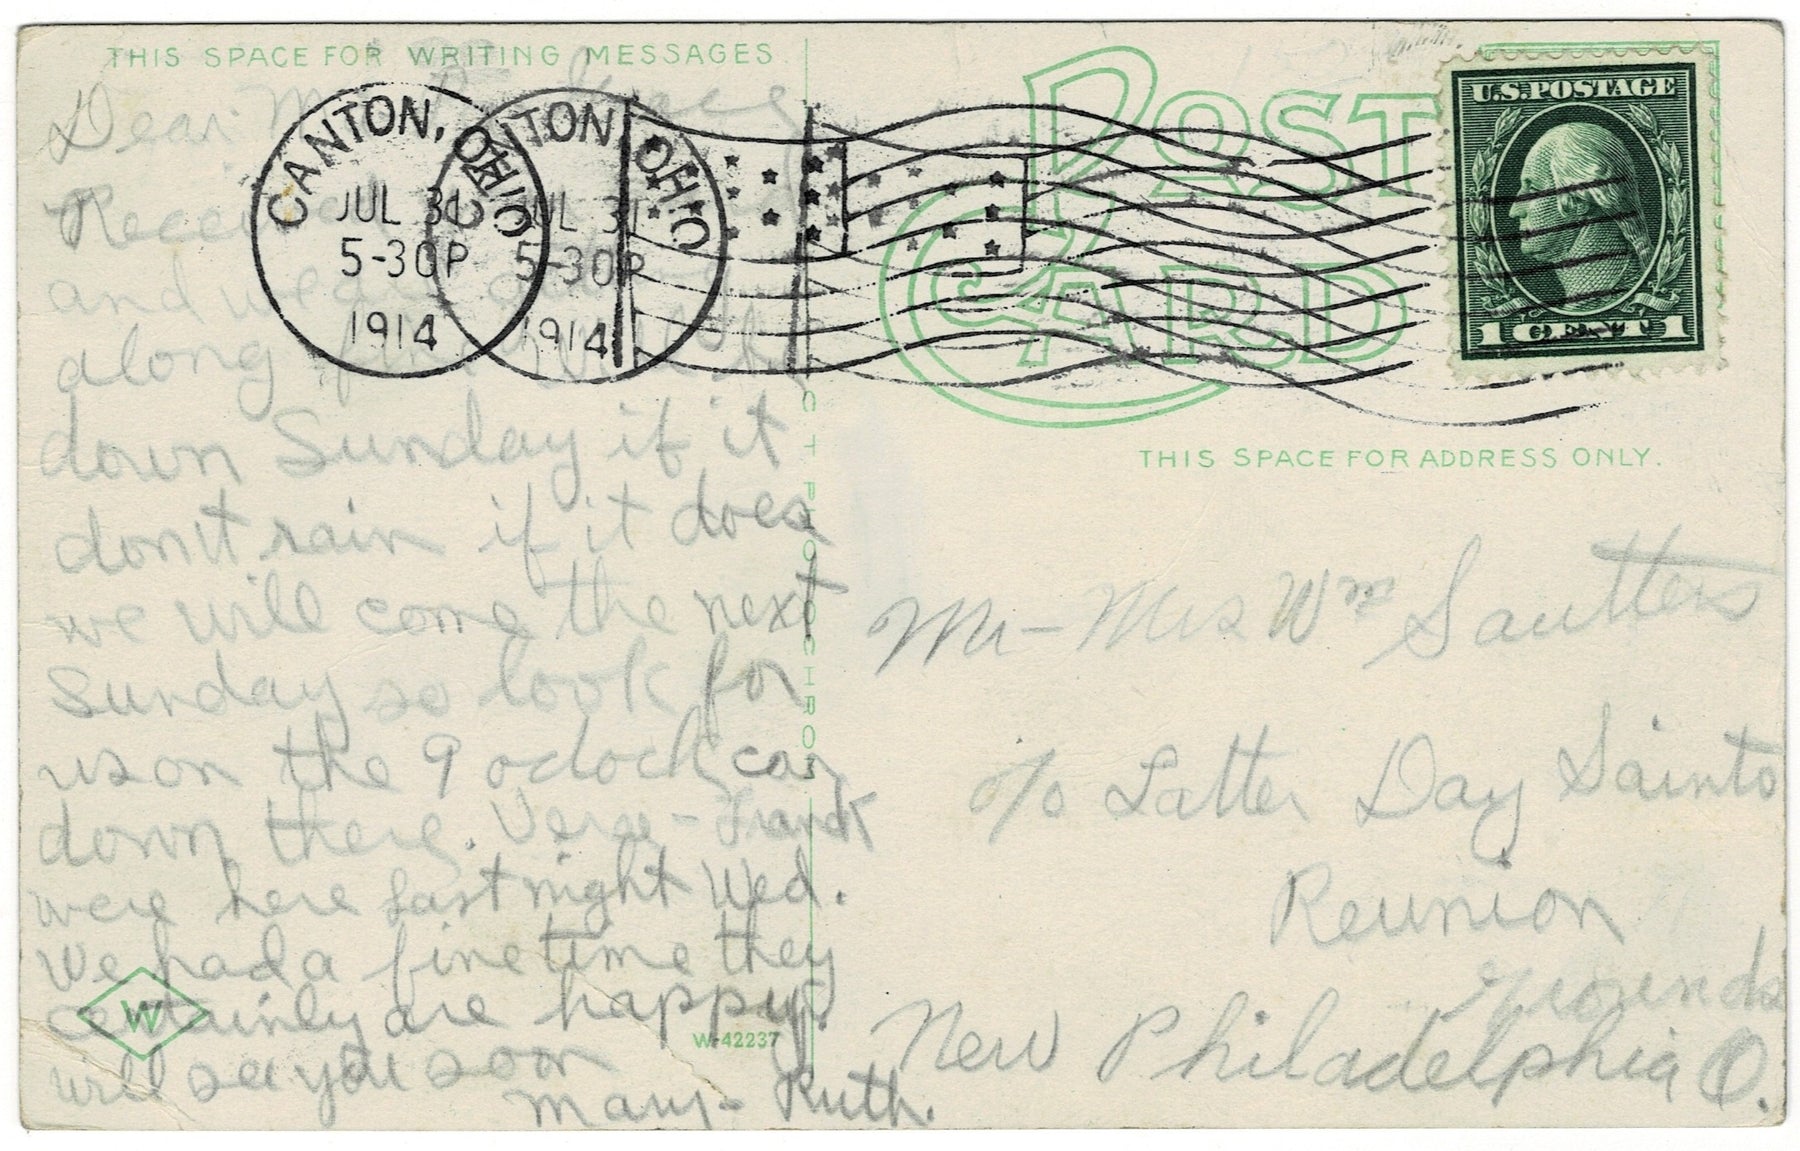 THIS SPACE FOR WRITING MESSAGES
Dear
Received
and we are
along
down Sunday if it
don't rain if it does
we will come the next
Sunday so look for
us on the 9 oclock car
down there. Verge - Frank
were here last night Wed.
We had a fine time they
certainly are happy.
will see you soon
Mary - Ruth.
W
W-42237
CANTON, OHIO
JUL 31
5-30P
1914
CANTON, OHIO
JUL 31
5-30P
1914
POST
CARD
U.S. POSTAGE
1 CENT 1
THIS SPACE FOR ADDRESS ONLY.
Mr - Mrs Wm Sautters
c/o Latter Day Saints
Reunion
Grounds
New Philadelphia O.